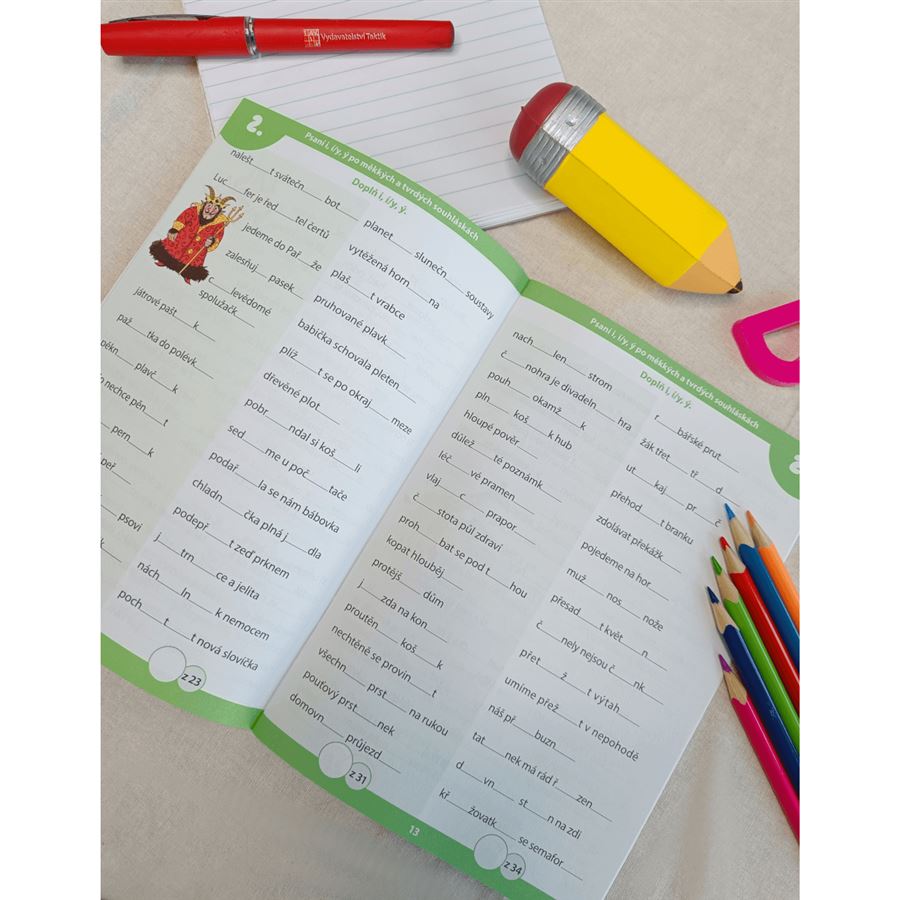 Vydavatelství Taktik
2.
Psaní i, í/y, ý po měkkých a tvrdých souhláskách
Doplň i, í/y, ý.
nalešt___t svátečn___ bot___
Luc___fer je řed___tel čertů
jedeme do Pař___že
zalesňuj___ pasek___
c___levědomé
spolužačk___
játrové pašt___k___
paž___tka do polévk___
plavč___k
nechce pěn___t
pern___k
psovi
planet___ slunečn___ soustavy
vytěžená horn___na
plaš___t vrabce
pruhované plavk___
babička schovala pleten___
plíž___t se po okraj___ meze
dřevěné plot___
pobr___ndal si koš___li
sed___me u poč___tače
podař___la se nám bábovka
chladn___čka plná j___dla
podepř___t zeď prknem
j___trn___ce a jelita
nách___ln___k nemocem
poch___t___t nová slovíčka
z 23
Psaní i, í/y, ý po měkkých a tvrdých souhláskách
Doplň i, í/y, ý.
nach___len___ strom
č___nohra je divadeln___ hra
pouh___ okamž___k
pln___ koš___k hub
hloupé pověr___
důlež___té poznámk___
léč___vé pramen___
vlaj___c___ prapor___
č___stota půl zdraví
proh___bat se pod t___hou
kopat hlouběj___
protějš___ dům
j___zda na kon___
proutěn___ koš___k
nechtěně se provin___t
všechn___ prst___ na rukou
pouťový prst___nek
domovn___ průjezd___
z 31
r___bářské prut___
žák třet___ tř___d___
ut___kaj___ pr___č
přehod___t branku
zdolávat překážk___
pojedeme na hor___
muž___ nos___ nože
přesad___t květ___n___
č___nely nejsou č___nk___
přet___ž___t výtah___
umíme přež___t v nepohodě
náš př___buzn___
tat___nek má rád ř___zen___
d___vn___ st___n na zdi
kř___žovatk___ se semafor___
z 34
13